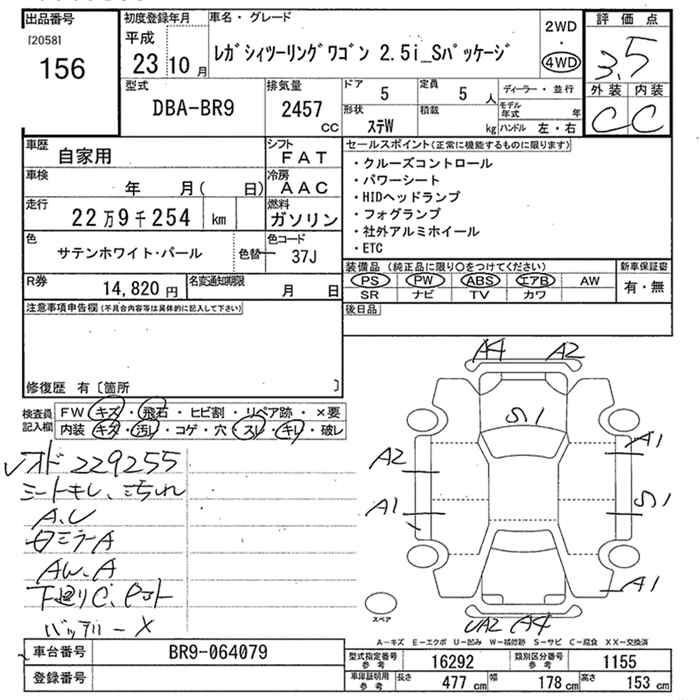 出品番号
[2058]
156
初度登録年月
平成
23 10 月
車名 ・ グレード
レガシィツーリングワゴン 2.5i_Sパッケージ
2WD
・
4WD
評価点
3.5
外装 内装
C C
型式
DBA-BR9
排気量
2457
cc
ドア
5
定員
5 人
ディーラー ・ 並行
形状
ステW
積載
kg
モデル年式 年
ハンドル 左・右
車歴
自家用
シフト
FAT
車検
年 月( 日)
冷房
AAC
走行
22万9千254 km
燃料
ガソリン
色
サテンホワイト・パール
色替
色コード
37J
R券
14,820 円
名変通知期限
月 日
セールスポイント(正常に機能するものに限ります)
・クルーズコントロール
・パワーシート
・HIDヘッドランプ
・フォグランプ
・社外アルミホイール
・ETC
装備品 (純正品に限り○をつけてください)
新車保証書
PS PW ABS エアB AW
SR ナビ TV カワ
有・無
後日品
注意事項申告欄(不具合内容等は具体的に記入して下さい)
修復歴 有〔箇所 〕
検査員記入欄
FW キズ ・ 飛石 ・ ヒビ割 ・ リペア跡 ・ ×要
内装 キズ ・ 汚レ ・ コゲ ・ 穴 ・ スレ ・ キレ ・ 破レ
229255
A.U
AW.A
バッテリーX
A4 A2
S1
A1
A2
A1
S1
A1
UA2 A4
スペア
A-キズ E-エクボ U-凹み W-補修跡 S-サビ C-腐食 XX-交換済
車台番号
BR9-064079
登録番号
型式指定番号
参考
16292
類別区分番号
参考
1155
車庫証明用
参考
長さ 477 cm 幅 178 cm 高さ 153 cm